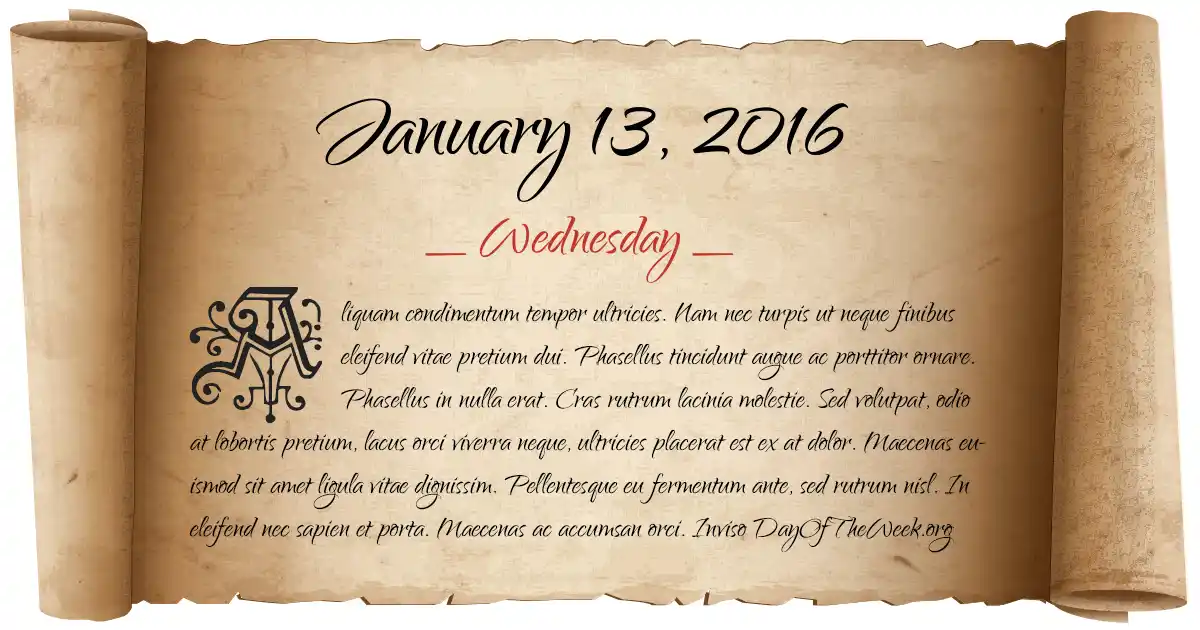 January 13, 2016
Wednesday
Aliquam condimentum tempor ultricies. Nam nec turpis ut neque finibus
eleifend vitae pretium dui. Phasellus tincidunt augue ac porttitor ornare.
Phasellus in nulla erat. Cras rutrum lacinia molestie. Sed volutpat, odio
at lobortis pretium, lacus orci viverra neque, ultricies placerat est ex at dolor. Maecenas eu-
ismod sit amet ligula vitae dignissim. Pellentesque eu fermentum ante, sed rutrum nisl. In
eleifend nec sapien et porta. Maecenas ac accumsan orci. Inviso DayOfTheWeek.org